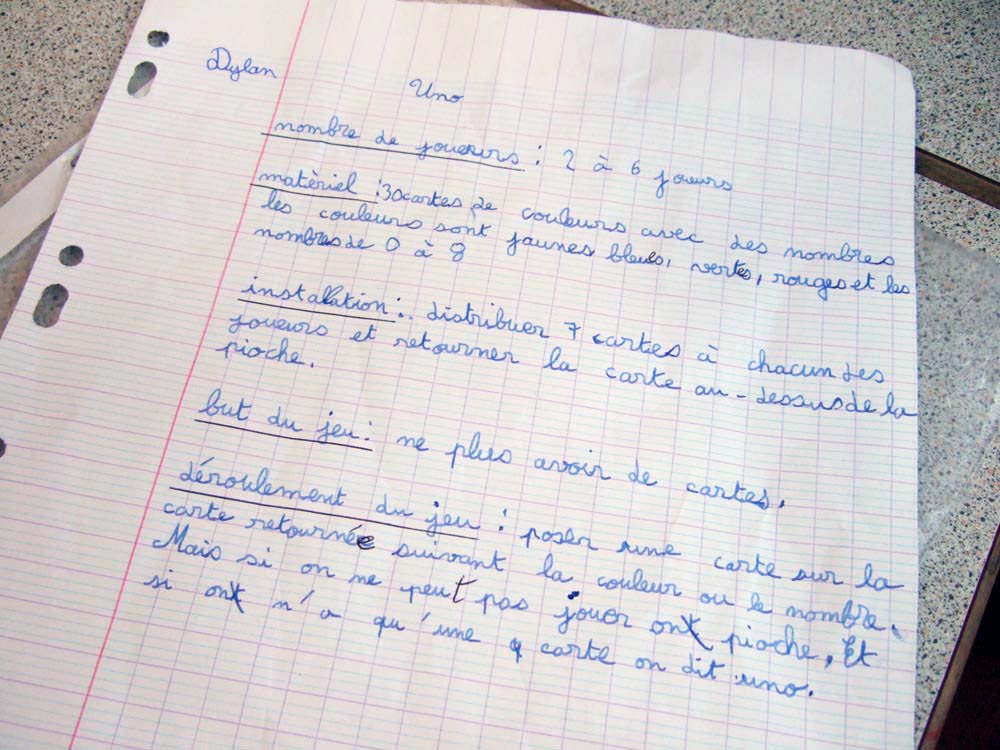 Dylan
Uno
nombre de joueurs : 2 à 6 joueurs
matèriel : 30 cartes de couleurs avec des nombres
les couleurs sont jaunes bleues, vertes, rouges et les
nombres de 0 à 9
installation : distribuer 7 cartes à chacun des
joueurs et retourner la carte au-dessus de la
pioche.
but du jeu : ne plus avoir de cartes.
déroulement du jeu : poser une carte sur la
carte retournée suivant la couleur ou le nombre.
Mais si on ne peut pas jouer on pioche, Et
si on n'a qu'une carte on dit uno.